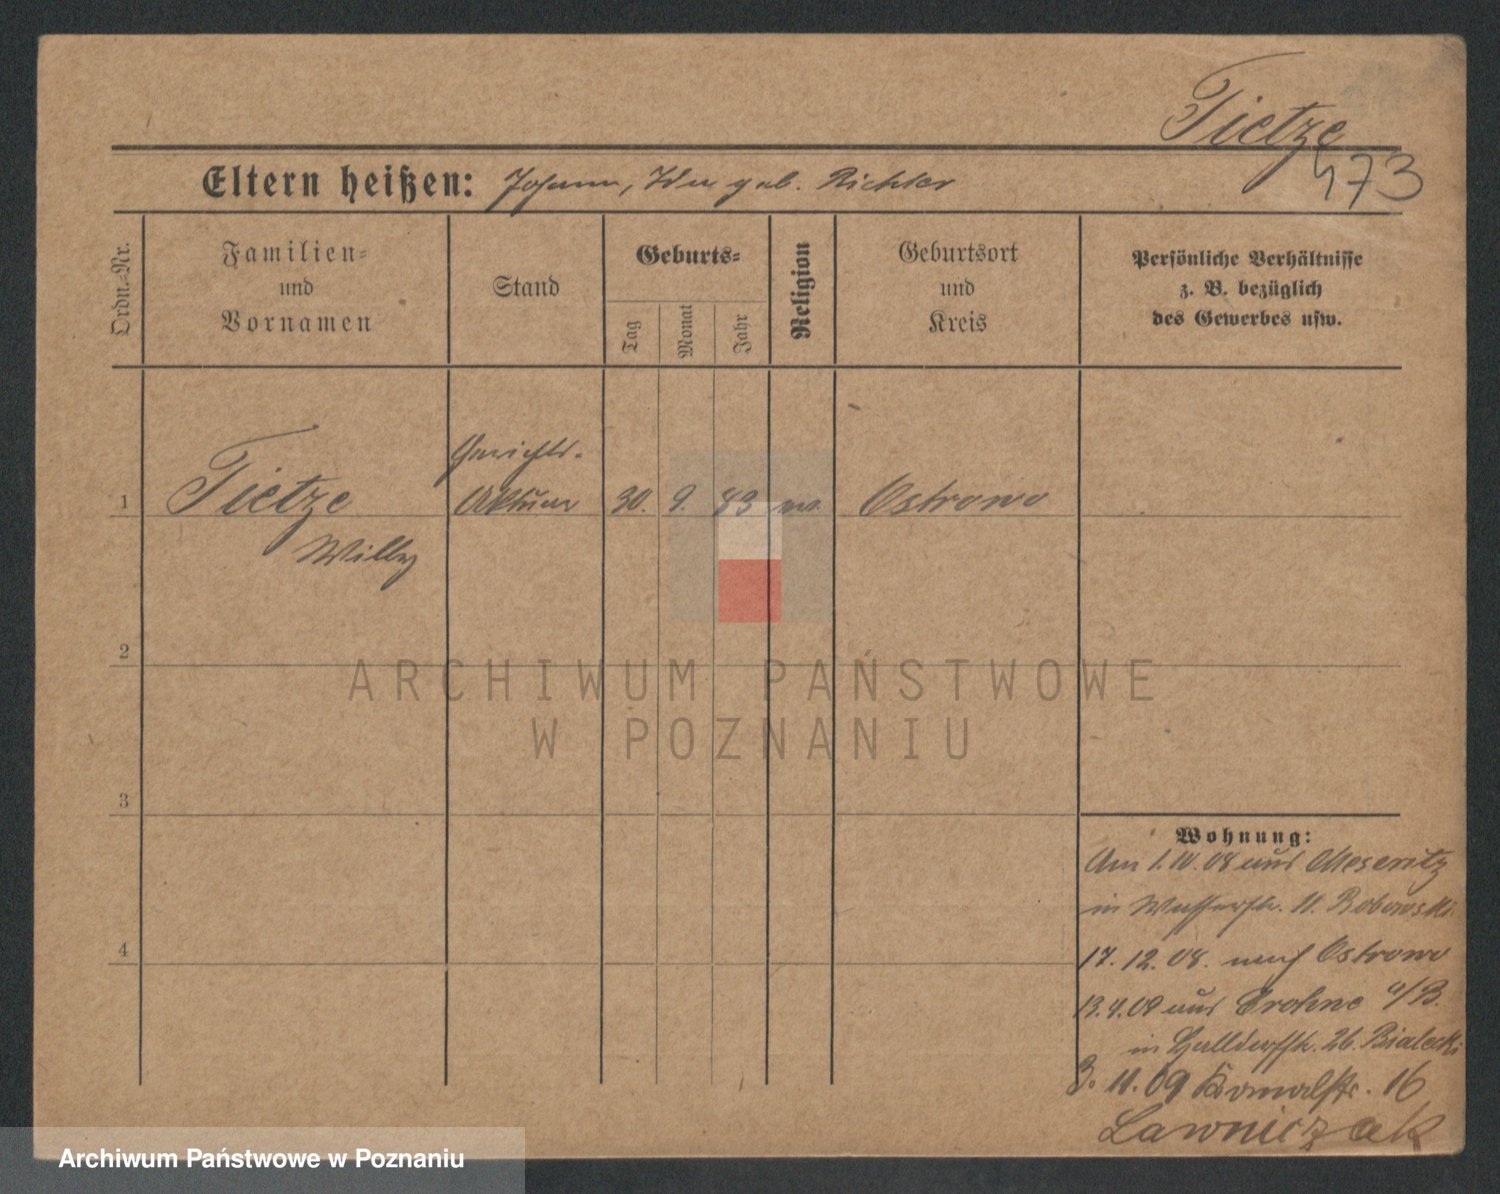 Tietze
473
Eltern heißen: Johann, Ida geb. Richter
Ordn.-Nr.
Familien-
und
Vornamen
Stand
Geburts-
Tag
Monat
Jahr
Religion
Geburtsort
und
Kreis
Persönliche Verhältnisse
z. B. bezüglich
des Gewerbes usw.
Gerichts-
1 Tietze Aktuar 30. 9. 83 ev. Ostrowo
Willy
2
ARCHIWUM PAŃSTWOWE
W POZNANIU
3
Wohnung:
Am 1.10.08 aus Meseritz
in Wasserstr. 11. Bobowski
4
17.12.08. nach Ostrowo
13.4.09 aus Crohne a/B.
in Halldorfstr. 26. Bialecki
3. 11. 09 Kanalstr. 16
Lawniczak
Archiwum Państwowe w Poznaniu